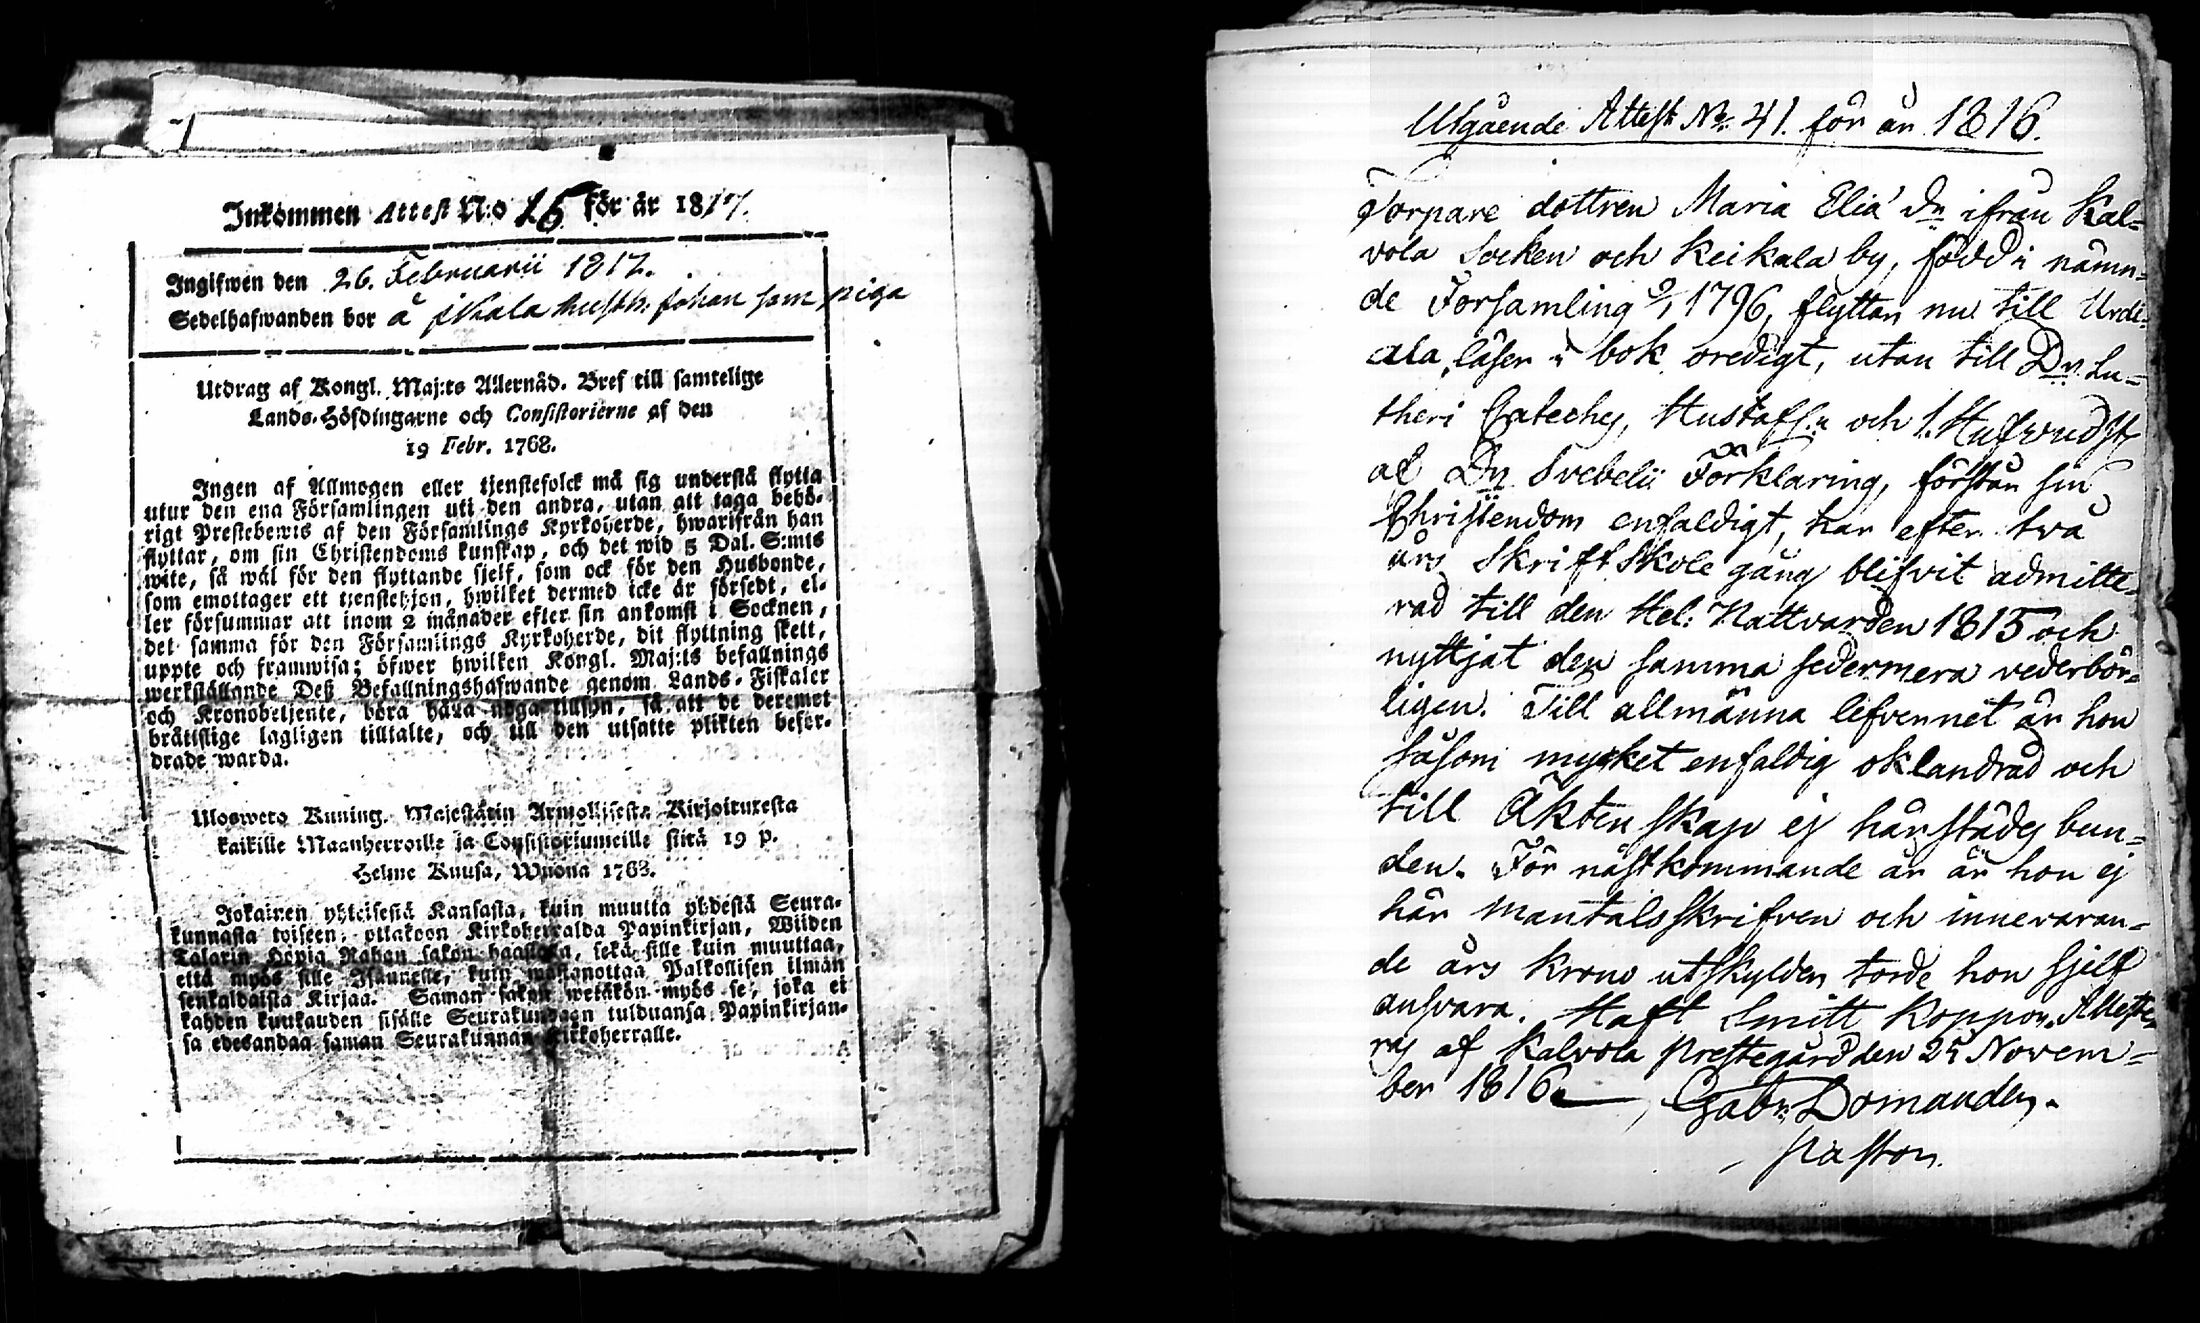 Inkommen Attest N:o 16 för år 1817.
Ingifwen den 26. Februarii 1817.
Sedelhafwanden bor å Skala husb. Johan som piga
Utdrag af Kongl. Maj:ts Allernåd. Bref till samtelige
Lands-Höfdingarne och Consistorierne af den
19 Febr. 1768.
Ingen af Allmogen eller tjenstefolck må sig understå flytta
utur den ena Församlingen uti den andra, utan att taga behö-
rigt Prestebewis af den Församlings Kyrkoherde, hwarifrån han
flyttar, om sin Christendoms kunskap, och det wid 5 Dal. S:mts
wite, så wäl för den flyttande sjelf, som ock för den Husbonde,
som emottager ett tjenstehjon, hwilket dermed icke är försedt, el-
ler försummar att inom 2 månader efter sin ankomst i Socknen,
det samma för den Församlings Kyrkoherde, dit flyttning skett,
uppte och framwisa; öfwer hwilken Kongl. Maj:ts befallnings
werkställande Deß Befallningshafwande genom Lands-Fiskaler
och Kronobetjente, böra hafwa noga tillsyn, så att de deremot
bråtislige lagligen tilltalte, och till den utsatte plikten befor-
drade warda.
Ulosweto Kuning. Majestätin Armollisesta Kirjoituresta
kaikille Maanherroille ja Consistoriumeille siitä 19 p.
Helme Kuusa, Wuona 1768.
Jokainen yhteisestä Kansasta, kuin muutta yhdestä Seura-
kunnasta toiseen, ottakoon Kirkoherralda Papinkirjan, Wiiden
Talarin Hopia Rahan sakon haastolla, sekä sille kuin muuttaa,
että myös sille Isännelle, kuin wastanottaa Palkollisen ilman
senkaldaista Kirjaa. Saman sakon wetäkön myös se, joka ei
kahden kuukauden sisälle Seurakundaan tulduansa Papinkirjan-
sa edesandaa saman Seurakunnan Kirkoherralle.
Utgående Attest No. 41. för år 1816.
Torpare dottren Maria Elia' Dr ifrån Kal-
vola Socken och Keikala by, född i nämn-
de Församling 9/1 1796, flyttar nu till Urdi-
ala, läser i bok oredigt, utan till Dr. Lu-
theri Cateches, Hustafl:n och 1. Hufvud St
af Dr Svebelii Förklaring, förstår sin
Christendom enfaldigt, har efter två
års Skriftskole gång blifvit admitte-
rad till den Hel: Nattvarden 1815 och
nyttjat den samma sedermera vederbör-
ligen. Till allmänna lefvernet är hon
såsom mycket enfaldig oklandrad och
till Äktenskap ej härstädes bun-
den. För nästkommande år är hon ej
här mantalsskrifven och innevaran-
de års krono utskylder torde hon sjelf
ansvara. Haft Smitt Koppor. Atteste-
ras af Kalvola Prestegård den 25 Novem-
ber 1816. Gabr. Domander.
Pastor.